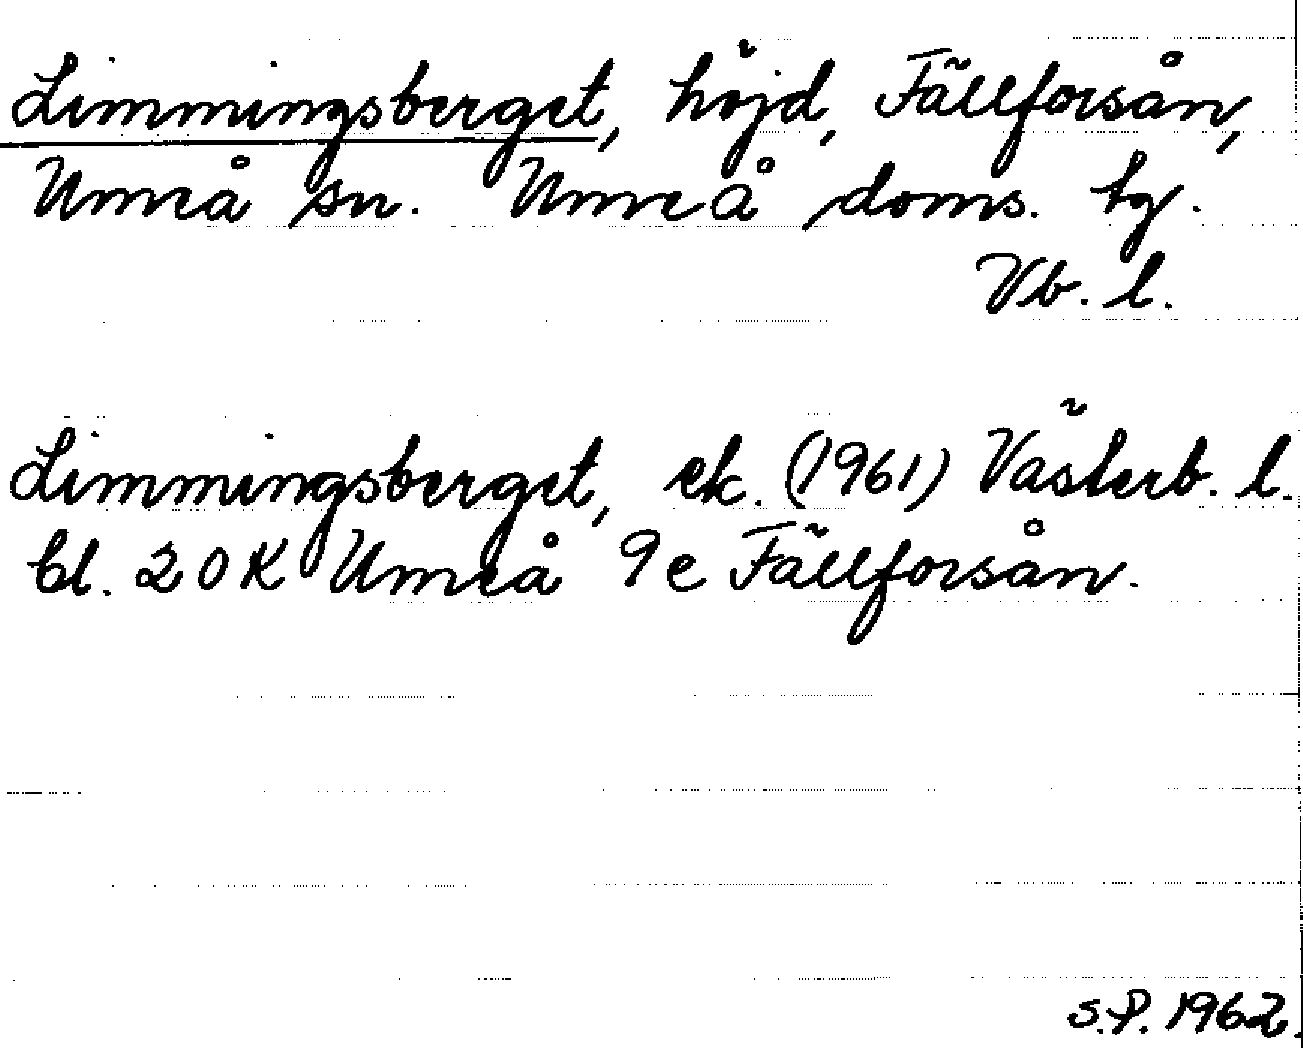 Limmingsberget, höjd, Fällforsån,
Umeå sn. Umeå doms. tg.
Vb. l.
Limmingsberget, ek. (1961) Västerb. l.
bl. 20 K Umeå 9 e Fällforsån.
S.P. 1962.